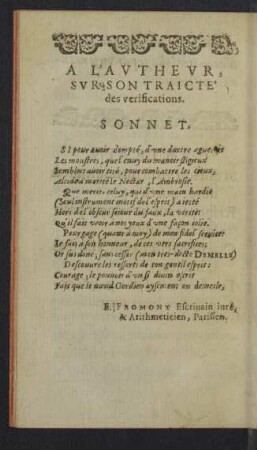 A L'AVTHEVR,
SVR SON TRAICTE'
des verifications.
SONNET.
SI pour auoir dompté, d'vne dextre aguerrie
Les monstres, quel enuoy du manoir stigieux
Sembloit auoir créé, pour combattre les cieux,
Alcide a merité le Nectar, l'Ambrosie.
Que merite celuy, que d'vne main hardie
(Seul instrument motif de l'esprit) a ietté
Hors de l'obscur seiour du faux, la verité:
Qu'il fait voir à nos yeux d'vne façon polie.
Pour gage (quant à moy) de mon fidel seruice
Ie fais à son honneur, de ces vers sacrifice:
Or sus donc, sans cesse, (mon tres-docte DEMELLES)
Descouure les ressorts de ton gentil esprit:
Courage, le pouuoir d'vn si diuin escrit
Fais que le nœud Gordien aysément on demesle,
E. FROMONT Escriuain iuré,
& Arithmeticien, Parisien.